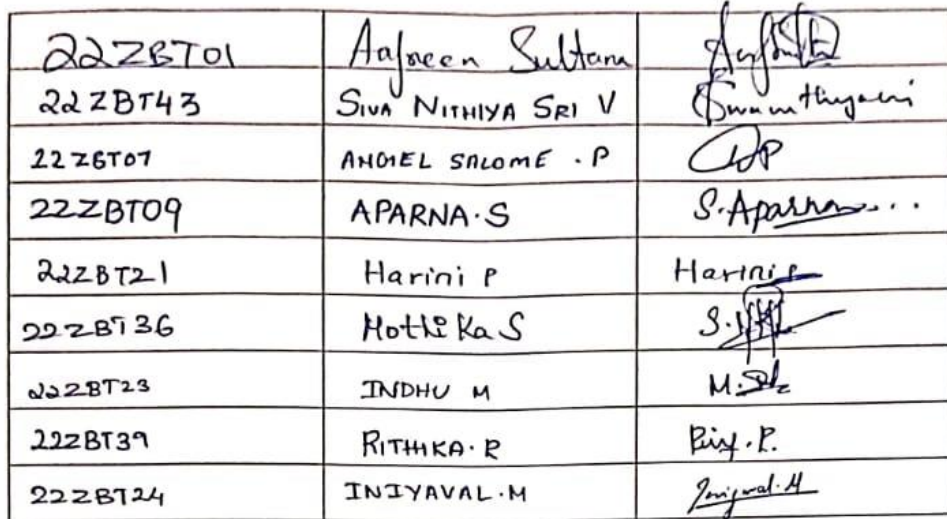 22ZBT01 Aafreen Sultana
22ZBT43 SIVA NITHIYA SRI V
22ZBT07 ANGIEL SALOME . P P
22ZBT09 APARNA.S S.Aparna...
22ZBT21 Harini P Harini P
22ZBT36 Mothika S S.
22ZBT23 INDHU M M.
22ZBT39 RITHIKA.R R.
22ZBT24 INIYAVAL.M Iniyaval.M